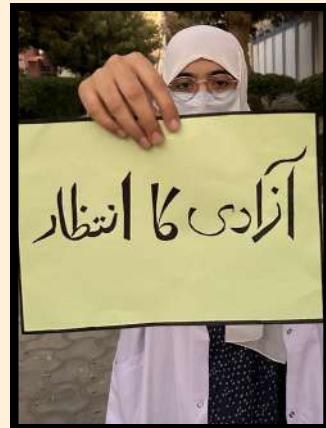 آزادی کا انتظار